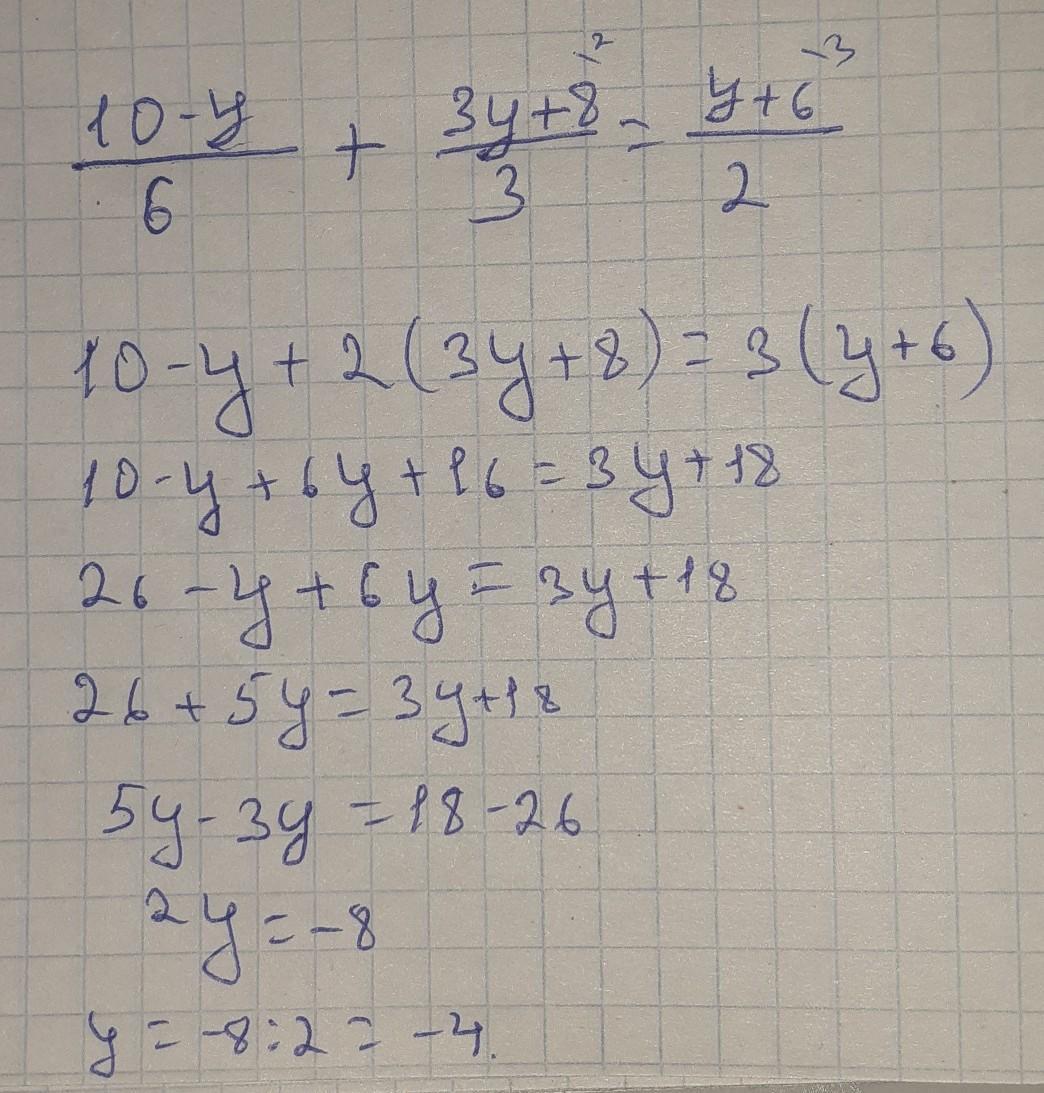 (10-y)/6 + (3y+8)/3 \2 = (y+6)/2 \3
10-y+2(3y+8)=3(y+6)
10-y+6y+16=3y+18
26-y+6y=3y+18
26+5y=3y+18
5y-3y=18-26
2y=-8
y=-8:2=-4.